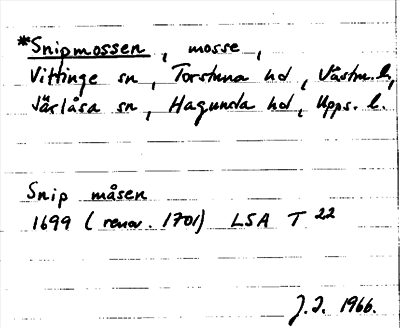 *Snipmossen, mosse,
Vittinge sn, Torstuna hd, Västm. l.,
Järlåsa sn, Hagunda hd, Upps. l.
Snip måsen
1699 (renov. 1701) LSA T 22
J.I. 1966.